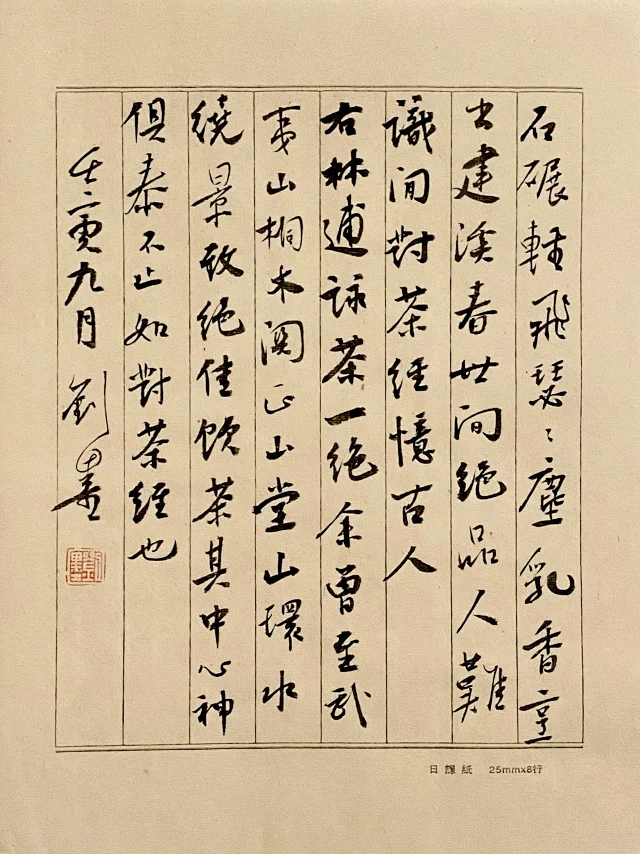 石碾輕飛瑟々塵乳香烹
出建溪春世間絕品人難
識閒對茶經憶古人
右林逋詠茶一絕余曾至武
夷山桐木關正山堂山環水
繞景致絕佳飲茶其中心神
俱泰不止如對茶經也
壬寅九月 劉墨
劉墨
日課紙 25mmx8行